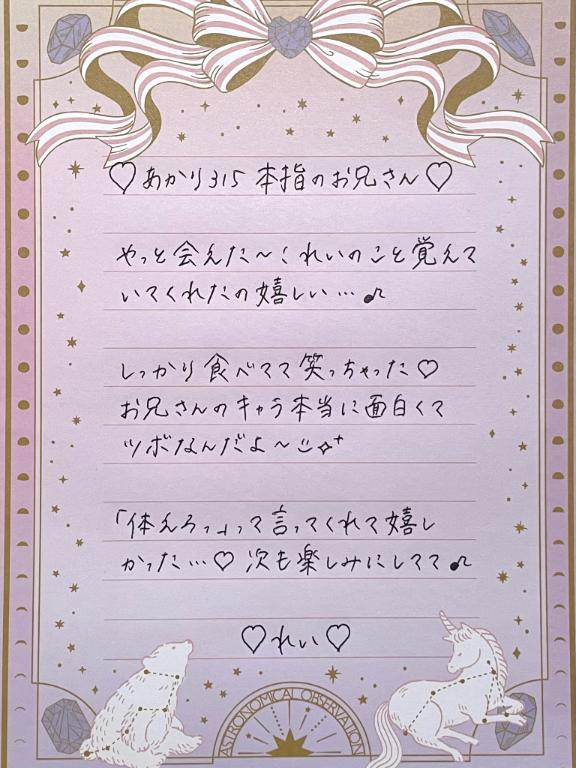 ♡あかり315 本指のお兄さん♡
やっと会えた〜！れいのこと覚えて
いてくれたの嬉しい…♪
しっかり食べてて笑っちゃった♡
お兄さんのキャラ本当に面白くて
ツボなんだよ〜
「体えろっ」って言ってくれて嬉し
かった…♡ 次も楽しみにしてて♪
♡れい♡
ASTRONOMICAL OBSERVATION